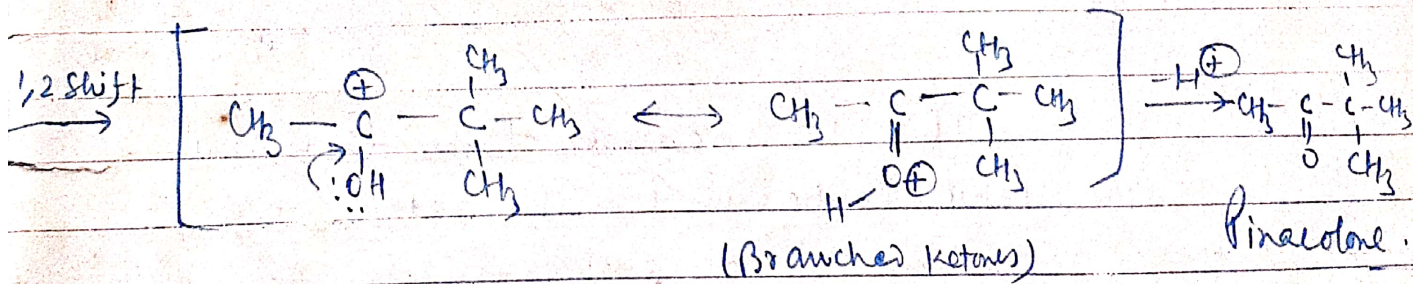 1,2 Shift
CH3 — C⊕ — C(CH3)(CH3) — CH3 ⟷ CH3 — C — C(CH3)(CH3) — CH3 −H⊕ → CH3 — C — C(CH3)(CH3) — CH3
:ÖH
H O⊕
O
(Branched Ketones)
Pinacolone.